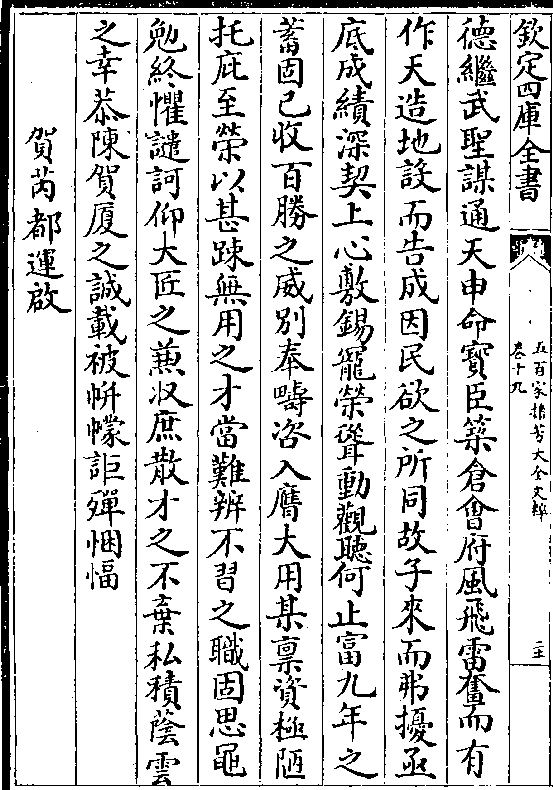 欽定四庫全書
五百家播芳大全文粹
卷十九
德繼武聖謀通天申命寳臣築倉㑹府風飛雷奮而有
作天造地設而告成因民欲之所同故子來而弗擾亟
底成績深契上心敷錫寵榮聳動觀聽何止富九年之
蓄固已收百勝之威别奉疇咨入膺大用某禀資極陋
托庇至榮以甚踈無用之才當難辨不習之職固思黽
勉終懼譴訶仰大匠之兼收庶散才之不棄私積䕃雲
之幸恭陳賀厦之誠載被帡幪詎殫悃愊
賀芮都運啟